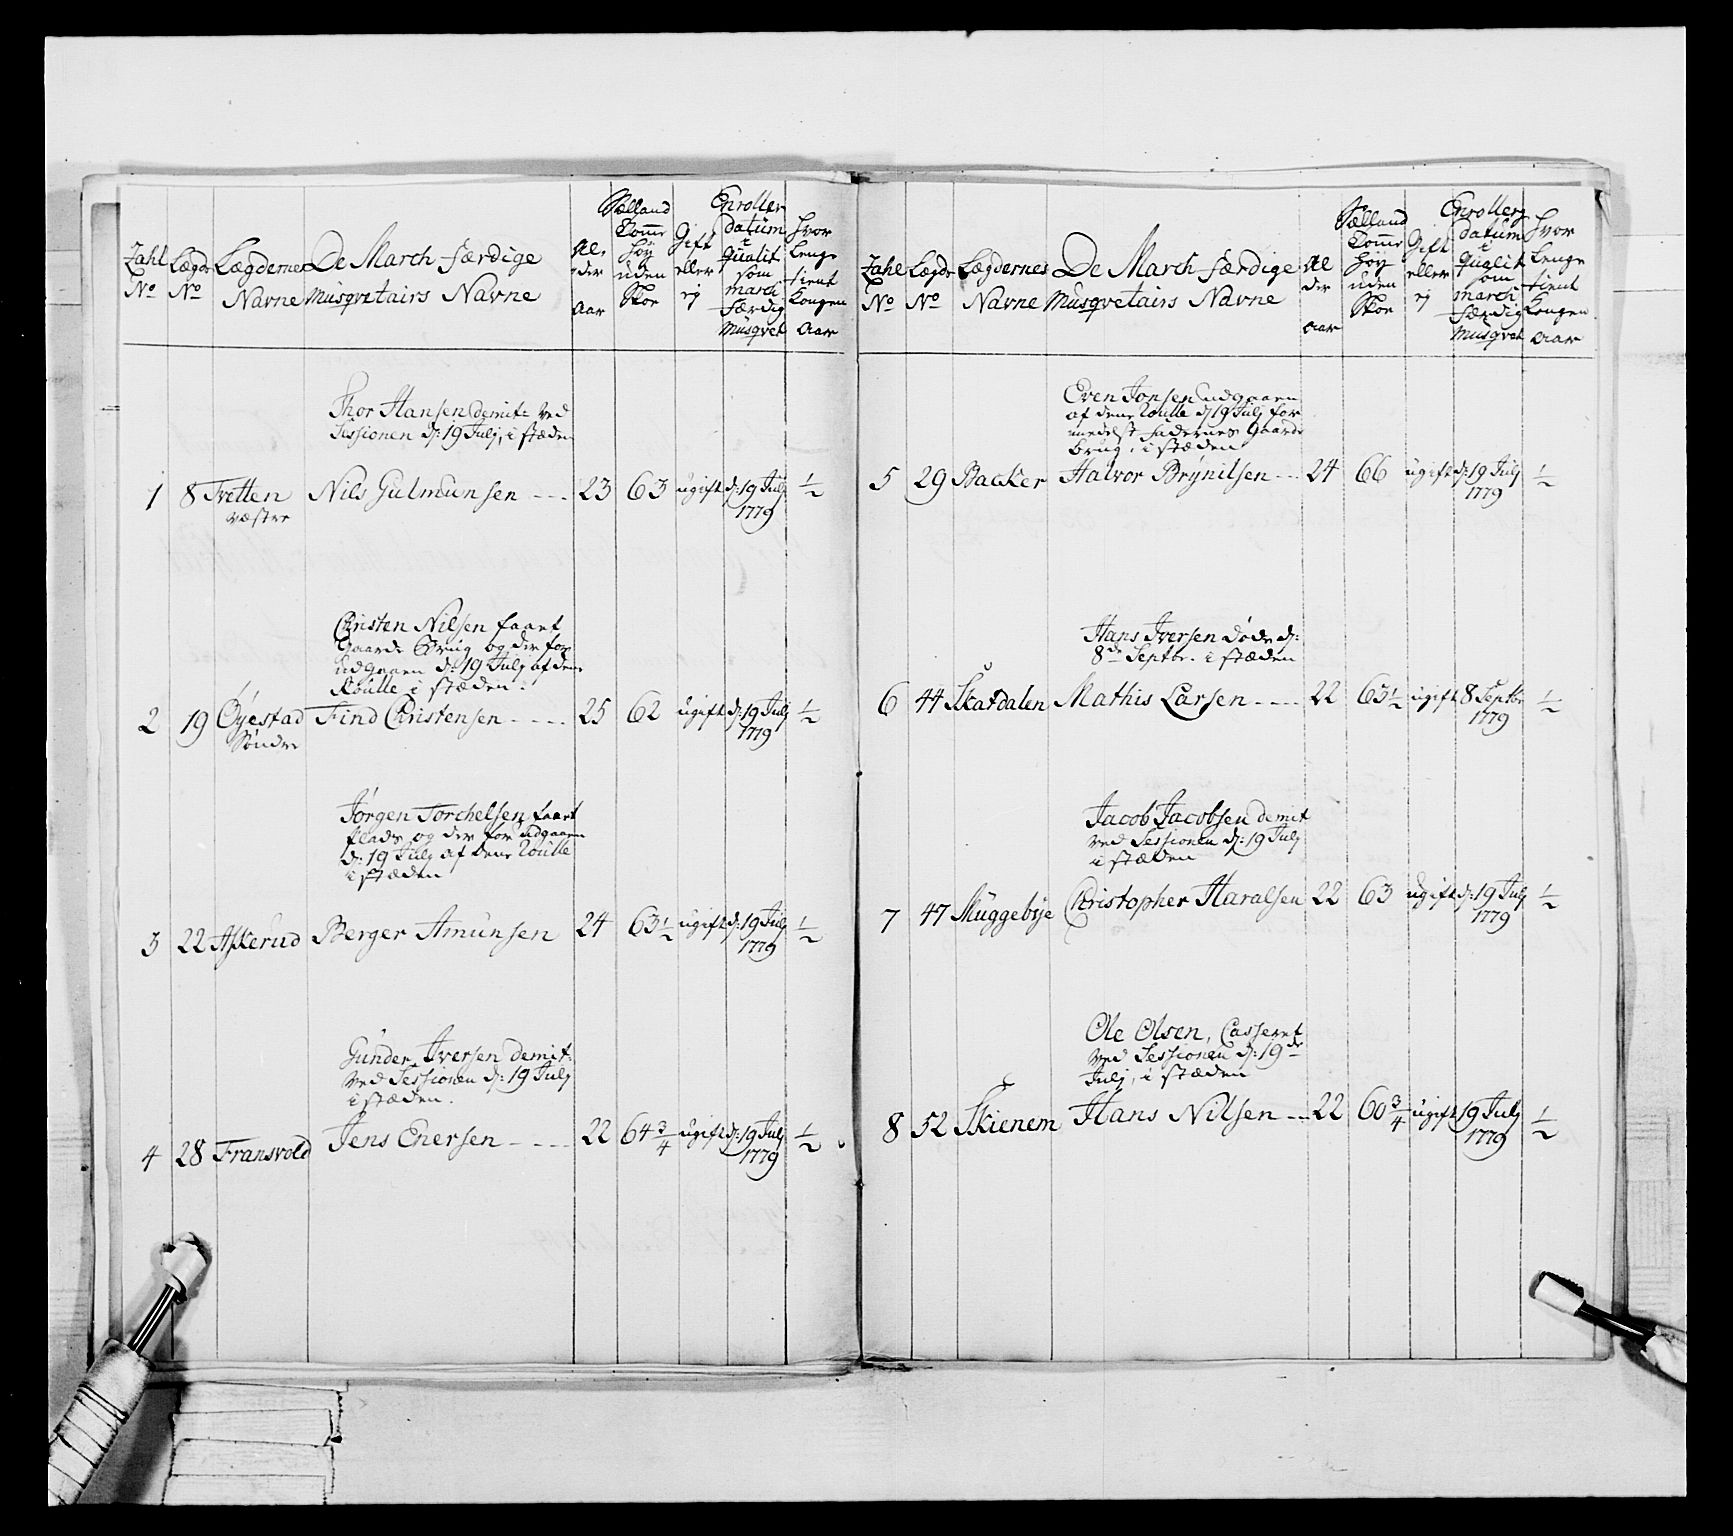 Zahl No | Lægde No | Lægdernes Navne | De March færdige Musqvetairs Navne | Al, der Aar | Sælland Tomme høy uden Skoe | Gift eller ej | Enroller datum i Qualit som march færdig Musqvet | hvor Lenge tient Kongen Aar
Thor Hansen demit: ved
Sessionen d: 19 Julj, i stæden
1 8 Tvetten Nils Gulmunsen - - - 23 63 ugift d: 19 Julj ½
væstre 1779
Christen Nilsen faaet
Gaards Brug og der for
udgaaen d: 19 Julj af den
Roulle i stæden.
2 19 Øyestad Find Christensen - - - - 25 62 ugift d: 19 Julj ½
Søndre 1779
Jørgen Torchelsen faaet
plads og der for udgaaen
d: 19 Julj af dene Roulle
i stæden
3 22 Askerud Berger Amunsen 24 63½ ugift d: 19 Julj ½
1779
Gunder Iversen demit:
ved Sessionen d: 19 Julj
i stæden.
4 28 Fransvold Jens Enersen - - - - 22 64¾ ugift d: 19 Julj ½
1779
Zahl No | Lægde No | Lægdernes Navne | De March færdige Musqvetairs Navne | Al der Aar | Sælland Tomme høy uden Skoe | Gift eller ej | Enrollerg datum i Qualit som march færdig Musqvet | hvor Lenge tient Kongen Aar
Even Jonsen udgaaen
af dene Roulle d 19 Julj for
medelst faderens Gaards
brug, i stæden
5 29 Backer Halvor Brynilsen - - 24 66 ugift d: 19 Julj ½
1779
Hans Iversen døde d:
8de Septbr. i stæden
6 44 Skatdalen Mathis Larsen - - - - 22 63½ ugift 8 Septbr ½
1779
Jacob Jacobsen demit
ved Sessionen d: 19 Julj
i stæden
7 47 Muggebye Christopher Haralsen 22 63 ugift d: 19 Julj ½
1779
Ole Olsen, Casseret
ved Sessionen d: 19de
Julj, i stæden
8 52 Skienem Hans Nilsen - - - 22 60¾ ugift 19 Julj ½
1779